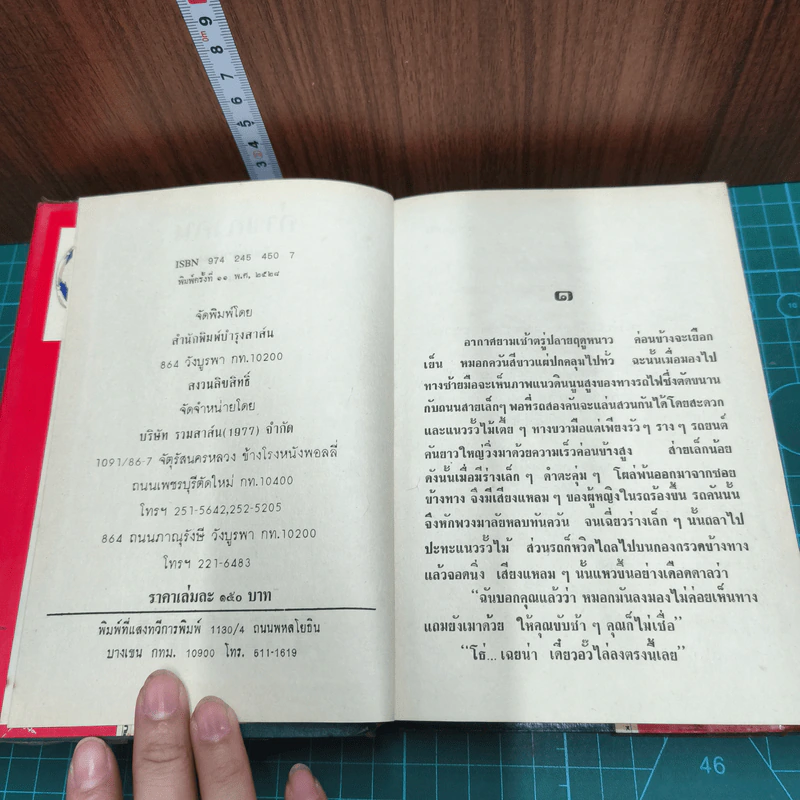 9
8
7
6
5
4
3
ISBN 974 245 450 7
พิมพ์ครั้งที่ ๑๑ พ.ศ. ๒๕๒๘
จัดพิมพ์โดย
สำนักพิมพ์บำรุงสาส์น
864 วังบูรพา กท.10200
สงวนลิขสิทธิ์
จัดจำหน่ายโดย
บริษัท รวมสาส์น(1977) จำกัด
1091/86-7 จัตุรัสนครหลวง ข้างโรงหนังพอลลี่
ถนนเพชรบุรีตัดใหม่ กท.10400
โทรฯ 251-5642,252-5205
864 ถนนภาณุรังษี วังบูรพา กท.10200
โทรฯ 221-6483
ราคาเล่มละ ๑๕๐ บาท
พิมพ์ที่แสงทวีการพิมพ์ 1130/4 ถนนพหลโยธิน
บางเขน กทม. 10900 โทร. 511-1619
๑
อากาศยามเช้าตรู่ปลายฤดูหนาว ค่อนข้างจะเยือก
เย็น หมอกควันสีขาวแผ่ปกคลุมไปทั่ว ฉะนั้นเมื่อมองไป
ทางซ้ายมือจะเห็นภาพแนวดินนูนสูงของทางรถไฟซึ่งตัดขนาน
กับถนนสายเล็กๆ พอที่รถสองคันจะแล่นสวนกันได้โดยสะดวก
และแนวรั้วไม้เตี้ย ๆ ทางขวามือแต่เพียงรัว ๆ ราง ๆ รถยนต์
คันยาวใหญ่วิ่งมาด้วยความเร็วค่อนข้างสูง ส่ายเล็กน้อย
ดังนั้นเมื่อมีร่างเล็ก ๆ ดำตะคุ่ม ๆ โผล่พ้นออกมาจากซอย
ข้างทาง จึงมีเสียงแหลม ๆ ของผู้หญิงในรถร้องขึ้น รถคันนั้น
จึงหักพวงมาลัยหลบทันควัน จนเฉี่ยวร่างเล็ก ๆ นั้นถลาไป
ปะทะแนวรั้วไม้ ส่วนรถก็หวิดไถลไปบนกองกรวดข้างทาง
แล้วจอดนิ่ง เสียงแหลม ๆ นั้นแหวขึ้นอย่างเดือดดาลว่า
“ฉันบอกคุณแล้วว่า หมอกมันลงมองไม่ค่อยเห็นทาง
แถมยังเมาด้วย ให้คุณขับช้า ๆ คุณก็ไม่เชื่อ”
“โธ่... เฉยน่า เดี๋ยวอั๊วไล่ลงตรงนี้เลย”
46